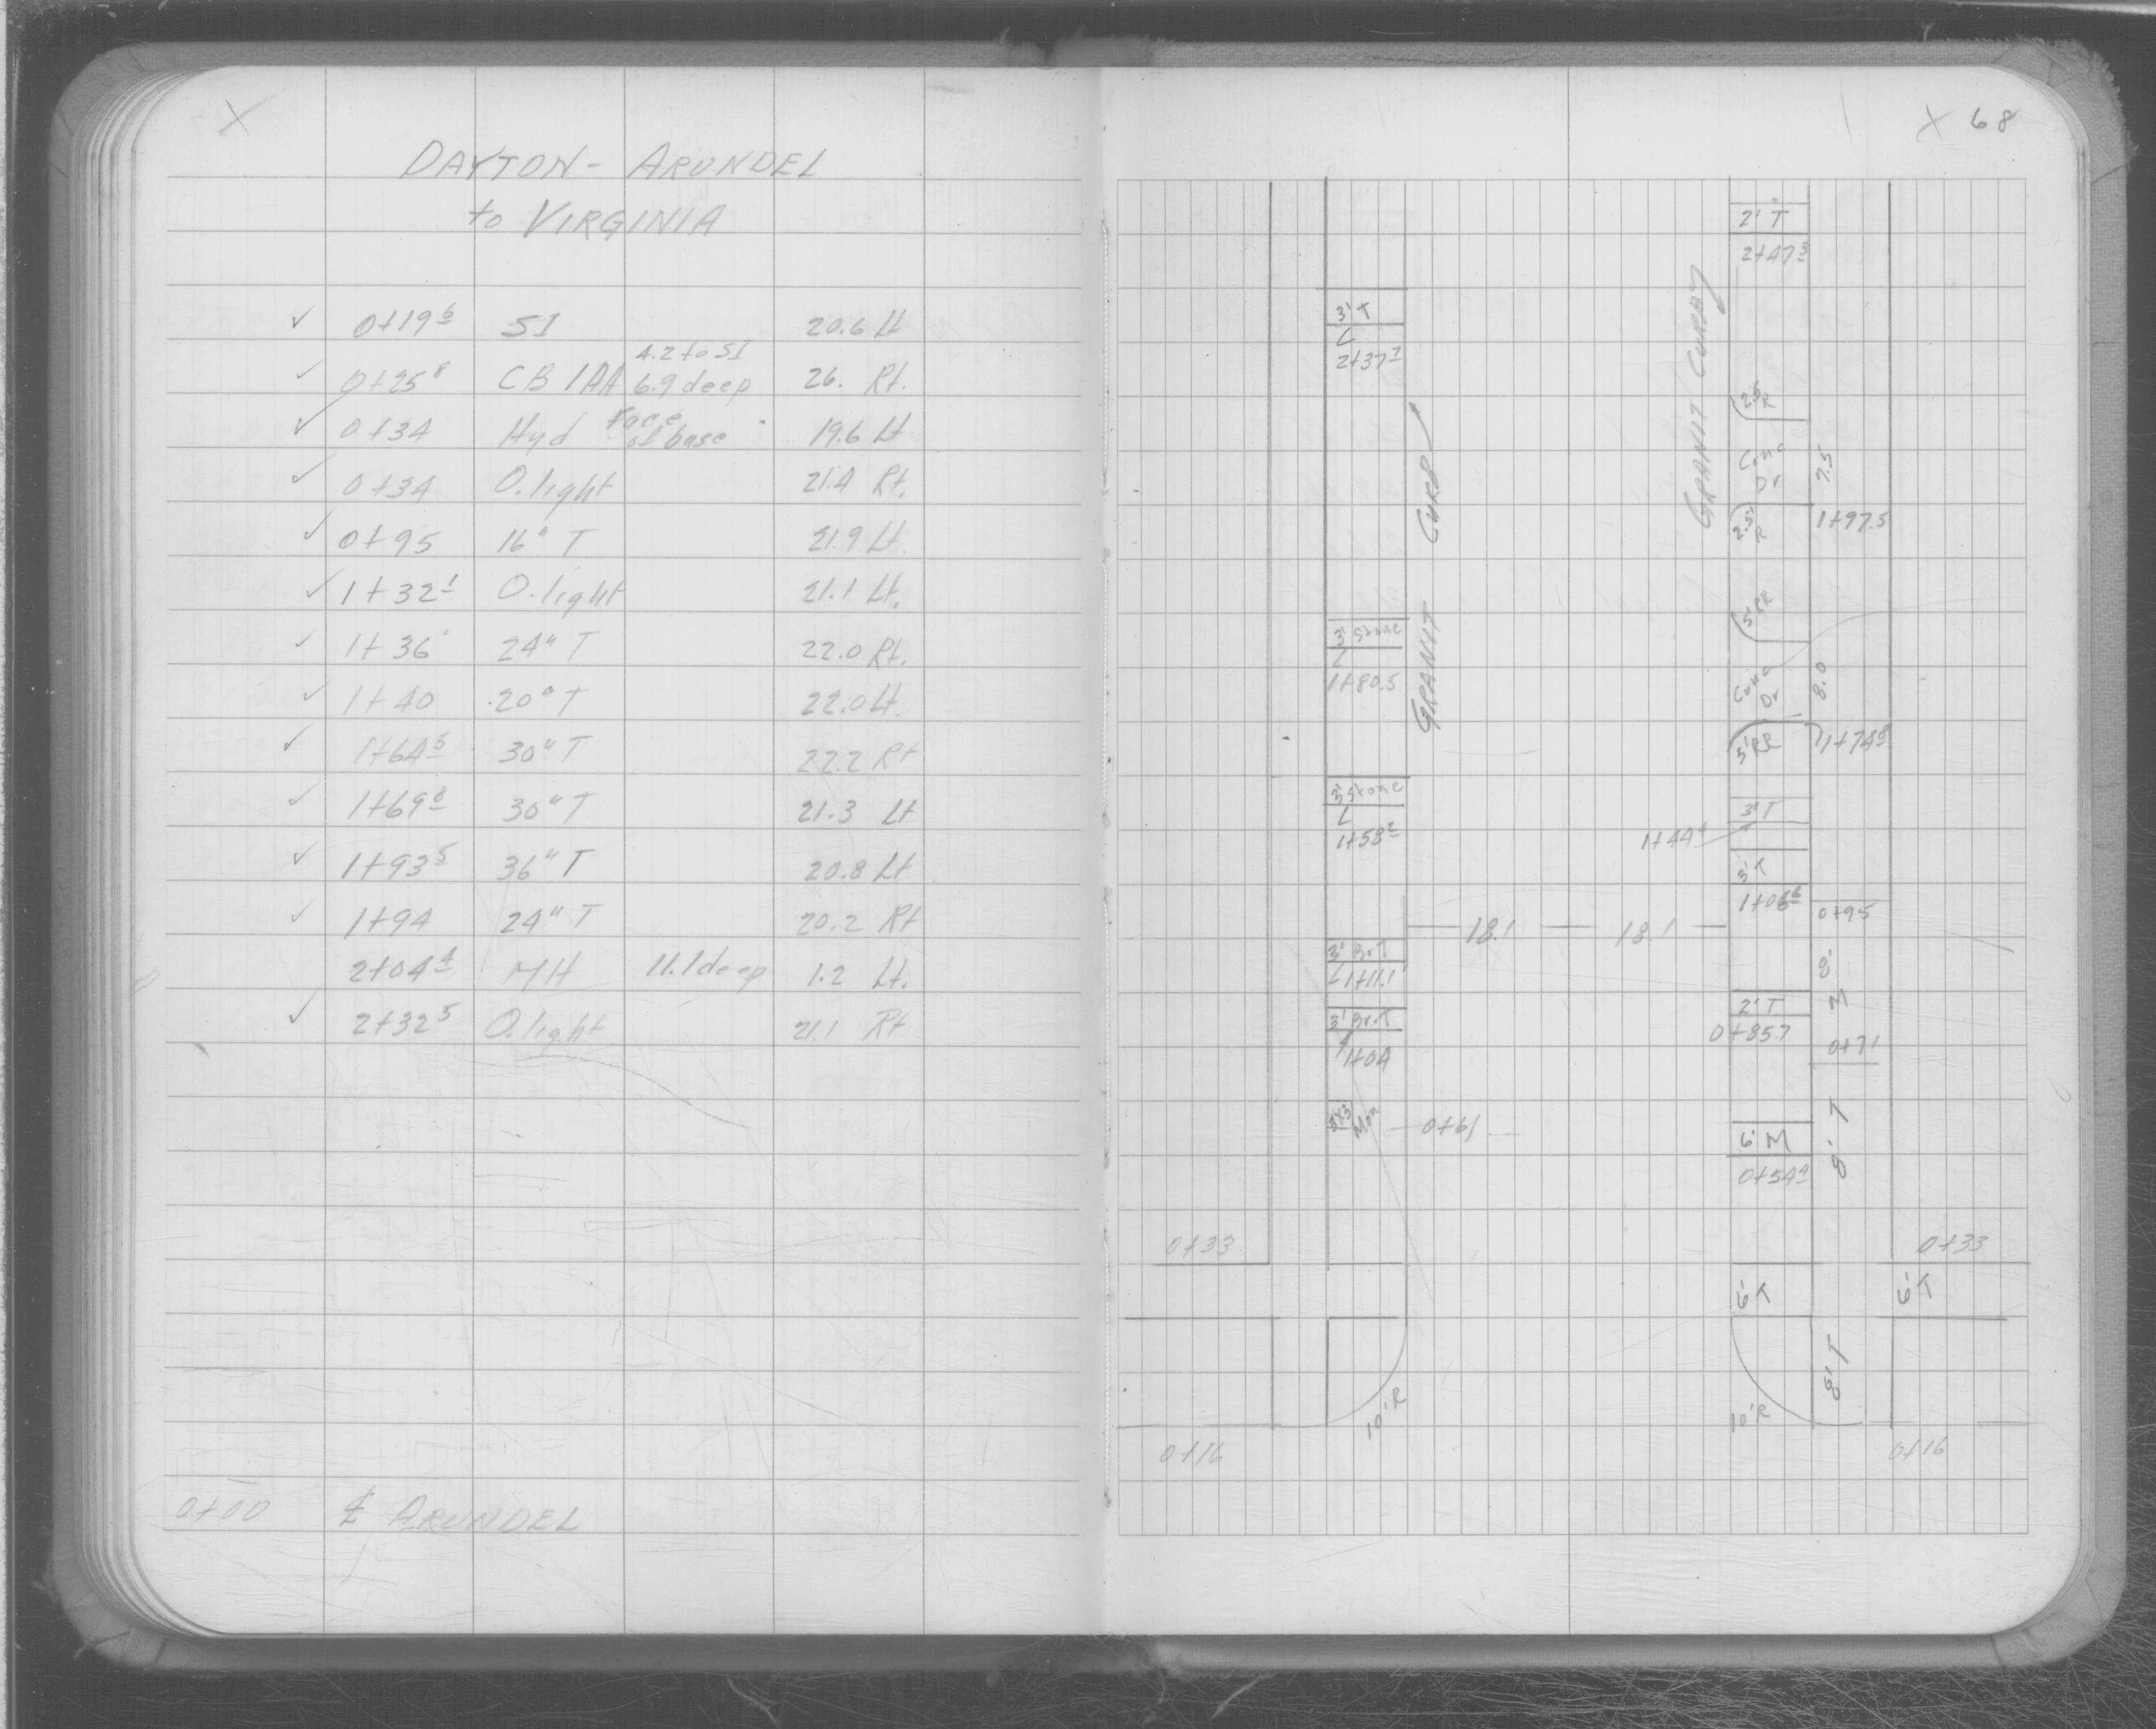 X
DAYTON - ARUNDEL
to VIRGINIA
✓ 0+19⁶ SI 20.6 Lt
4.2 to SI
✓ 0+25⁸ CB 1AA 6.9 deep 26. Rt.
✓ 0+34 Hyd Face of base 19.6 Lt
✓ 0+34 O.light 21.4 Rt.
✓ 0+95 16" T 21.9 Lt.
✓ 1+32¹ O.light 21.1 Lt.
✓ 1+36 24" T 22.0 Rt.
✓ 1+40 20" T 22.0 Lt.
✓ 1+64⁵ 30" T 22.2 Rt
✓ 1+69⁸ 30" T 21.3 Lt
✓ 1+93⁵ 36" T 20.8 Lt
✓ 1+94 24" T 20.2 Rt
2+04⁴ MH 11.1 deep 1.2 Lt.
✓ 2+32⁵ O.light 21.1 Rt
0+00 ℄ ARUNDEL
X 68
2' T
2+47³
3' T
2+37⁷
GRANIT CURB
GRANIT CURB
2.5 R
Conc
Dr
7.5
2.5' R
1+97.5
3' Stone
1+80.5
5' RR
Conc
Dr
8.0
5' RR
1+74⁸
3' Stone
1+58²
3' T
1+44⁴
3' T
1+06⁶
0+95
18.1 18.1
3' Br.T
1+11.1
8' M
2' T
0+85.7
3' Br.T
1+04
0+71
3X3 Man
0+61
8' T
6' M
0+54⁹
0+33
0+33
6' T
6' T
8' T
10' R
10' R
0+16
0+16